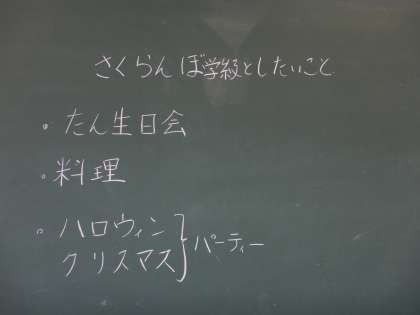 さくらんぼ学級としたいこと
。たん生日会
。料理
。ハロウィン
クリスマス}パーティー